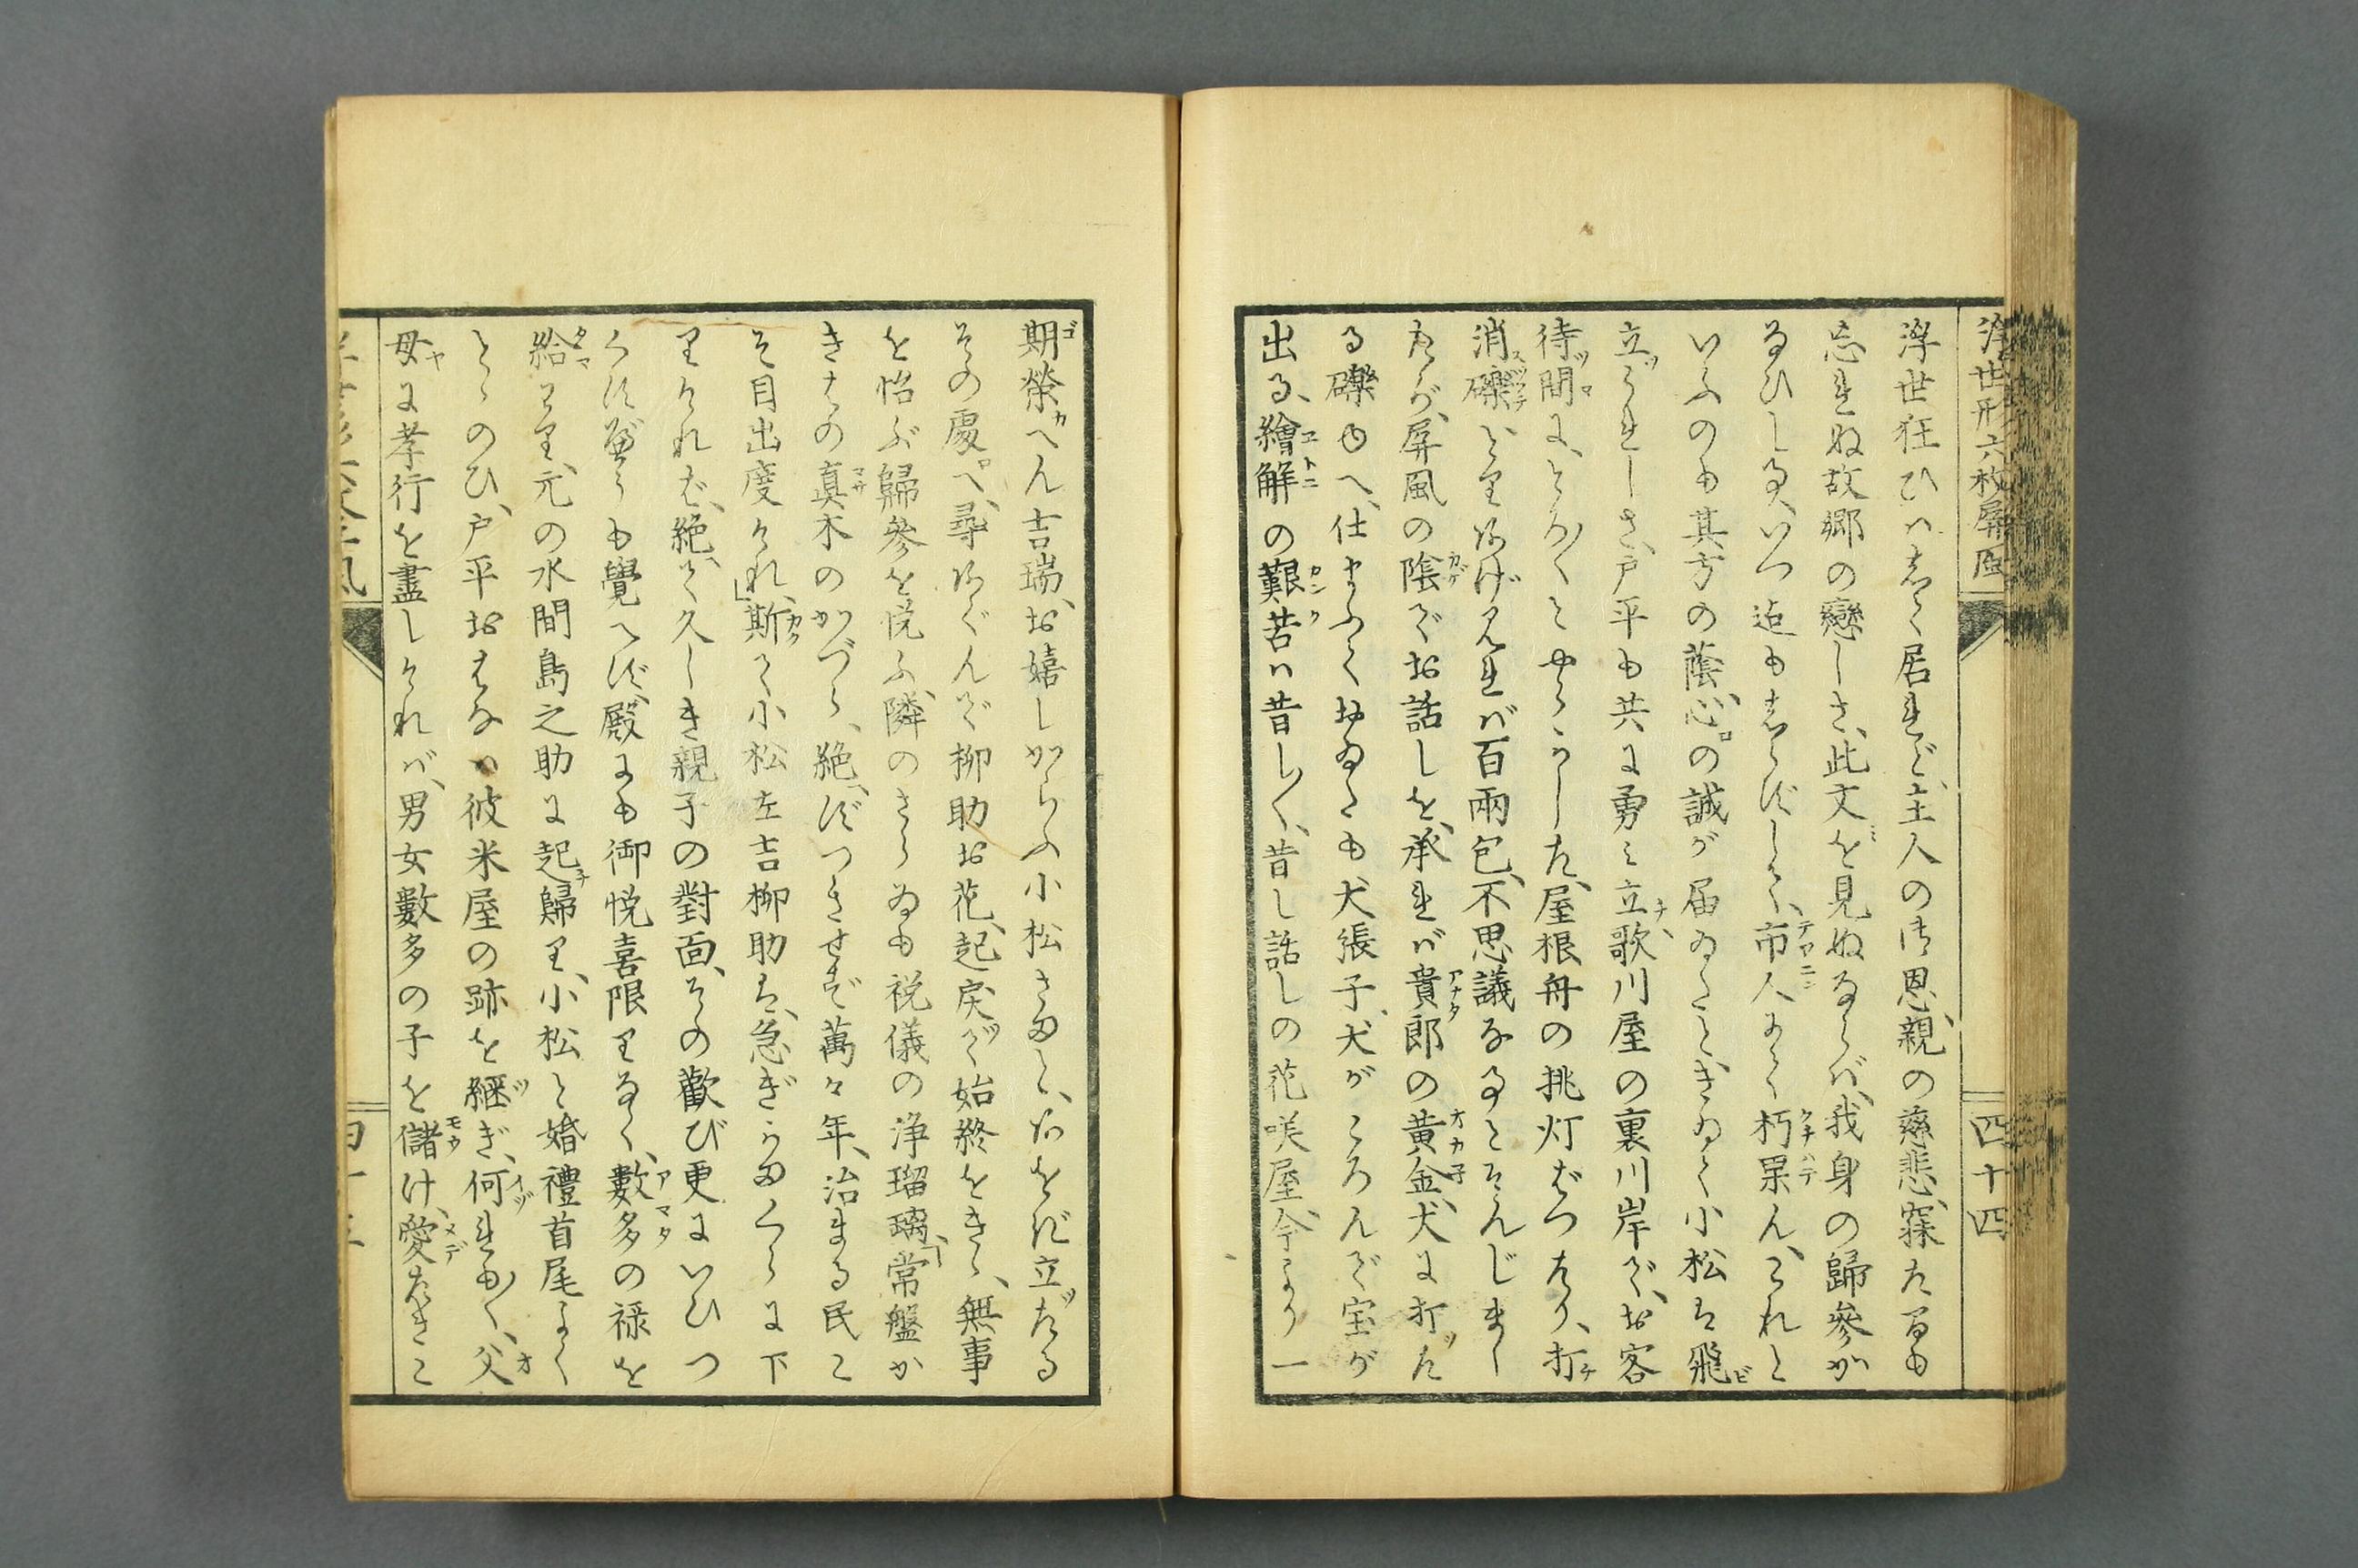 浮世形六枚屏風
四十四
浮世狂ひハ志て居れど、主人の御恩、親の慈悲、寐た間も
忘れぬ故郷の戀しさ、此文を見ぬならバ、我身の歸參が
なひしる、いつ迄も志らずして、市人ふて朽果ん、これと
いふのも其方の蔭、心の誠が届ゐたときゐて小松ハ飛
立うれしさ、戸平も共に勇ミ立、歌川屋の裏川岸で、お客
待間に、とろ〳〵とやらかした、屋根舟の挑灯ばつたり、打
消礫、とり
あげ見れバ百兩包、不思議なるとぞんじまし
たが、屏風の陰でお話しを、承れバ貴郎の黄金、犬に打た
る礫ゆへ、仕
もふて
おゐた
も犬張子、犬がころんで宝が
出る、繪解の艱苦ハ昔し〳〵、昔し話しの花咲屋、今より一
期榮へん吉瑞、お嬉しからふ小松さま、
立たる
その處へ、尋
あぐんで柳助お花、起戻つて始終をきゝ、無事
を悦ぶ歸參を悦ふ、隣のさらゐも祝儀の浄瑠璃、「常盤か
きはの真木のかづら、絶ずつきせず萬々年、治まる民こ
そ目出度けれ、」斯て小松左吉柳助ハ、急ぎかまくらに下
りければ、絶て久しき親子の對面、その歡び更にいひつ
くす
べうも覺へず、殿にも御悦喜限りなく、數多の禄を
給ハり、元の水間島之助に起歸り、小松と婚禮首尾よく
とゝのひ、戸平おはなハ彼米屋の跡を継ぎ、何れも〳〵、父
母に孝行を盡しければ、男女數多の子を儲け、愛たきこ